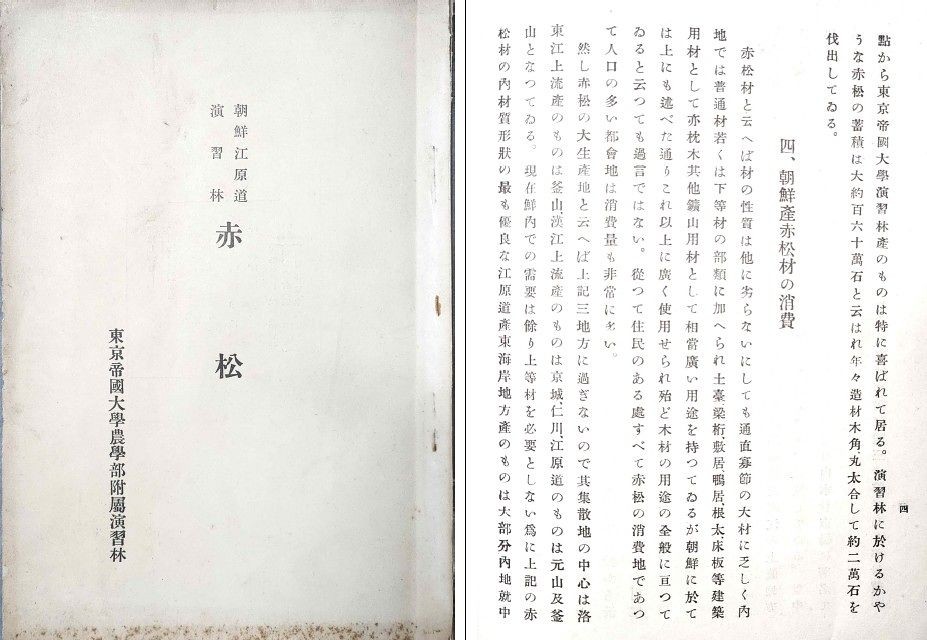 朝鮮江原道
演習林
赤松
東京帝國大學農學部附屬演習林
四
點から東京帝國大學演習林產のものは特に喜ばれて居る。演習林に於けるかや
うな赤松の蓄積は大約百六十萬石と云はれ年々造材木角、丸太合して約二萬石を
伐出してゐる。
四、朝鮮產赤松材の消費
赤松材と云へば材の性質は他に劣らないにしても通直寡節の大材に乏しく內
地では普通材若くは下等材の部類に加へられ土臺梁桁、敷居鴨居、根太、床板等建築
用材として亦枕木其他鑛山用材として相當廣い用途を持つてゐるが朝鮮に於て
は上にも述べた通りこれ以上に廣く使用せられ殆ど木材の用途の全般に亘つて
ゐると云つても過言ではない。從つて住民のある處すべて赤松の消費地であつ
て人口の多い都會地は消費量も非常に多い。
然し赤松の大生產地と云へば上記三地方に過ぎないので其集散地の中心は洛
東江上流產のものは釜山、漢江上流產のものは京城、仁川、江原道のものは元山及釜
山となつてゐる。現在鮮內での需要は餘り上等材を必要としない爲に上記の赤
松材の內材質形狀の最も優良な江原道產東海岸地方產のものは大部分內地就中